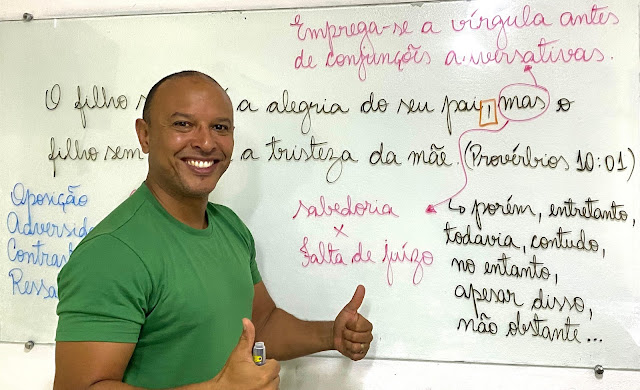 Emprega-se a vírgula antes
de conjunções a versativas.
O filho s a alegria do seu pai, mas o
filho sem a tristeza da mãe. (Provérbios 10:01)
Oposição
Adversid
Contras
Ressa
sabedoria
x
Falta de juízo
↳ porém, entretanto,
todavia, contudo,
no entanto,
apesar disso,
não obstante...